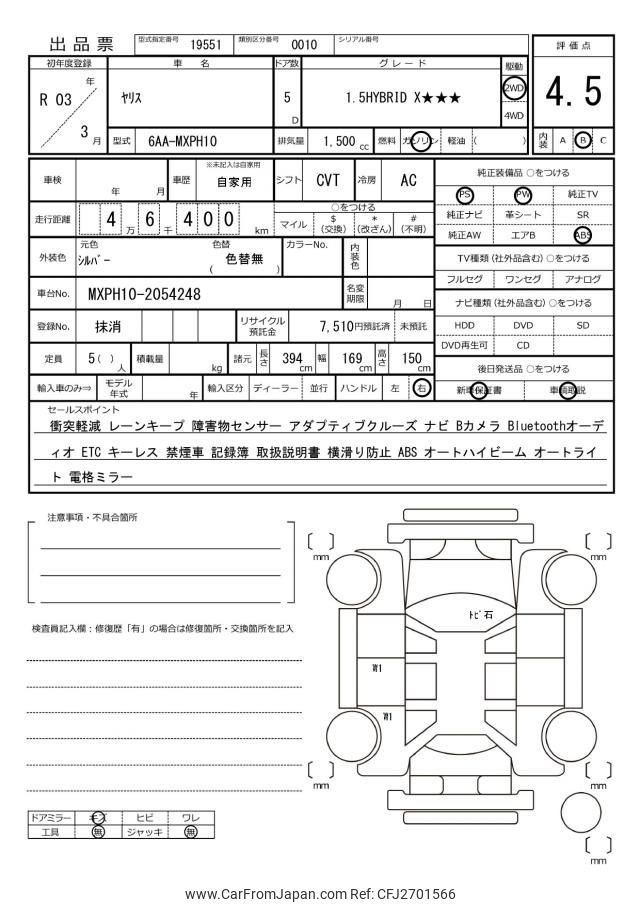 出品票 型式指定番号 19551 類別区分番号 0010 シリアル番号
評価点
4.5
内装 A B C
初年度登録 車名 ドア数 グレード 駆動
R 03 年 3 月 ヤリス 5 D 1.5HYBRID X★★★ 2WD 4WD
型式 6AA-MXPH10 排気量 1,500 cc 燃料 ガソリン 軽油 ( )
車検 年 月 車歴 ※未記入は自家用 自家用 シフト CVT 冷房 AC
走行距離 4 万 6 千 4 0 0 km ○をつける
マイル $ (交換) * (改ざん) # (不明)
外装色 元色 シルバー 色替 ( 色替無 ) カラーNo. 内装色
車台No. MXPH10-2054248 名変期限 月 日
登録No. 抹消 リサイクル預託金 7,510円預託済 未預託
定員 5 ( ) 人 積載量 kg 諸元 長さ 394 cm 幅 169 cm 高さ 150 cm
輸入車のみ⇒ モデル年式 年 輸入区分 ディーラー 並行 ハンドル 左 右
純正装備品 ○をつける
PS PW 純正TV
純正ナビ 革シート SR
純正AW エアB ABS
TV種類 (社外品含む) ○をつける
フルセグ ワンセグ アナログ
ナビ種類 (社外品含む) ○をつける
HDD DVD SD
DVD再生可 CD
後日発送品 ○をつける
新車保証書 車輌取説
セールスポイント
衝突軽減 レーンキープ 障害物センサー アダプティブクルーズ ナビ Bカメラ Bluetoothオーデ
ィオ ETC キーレス 禁煙車 記録簿 取扱説明書 横滑り防止 ABS オートハイビーム オートライ
ト 電格ミラー
注意事項・不具合箇所
検査員記入欄：修復歴「有」の場合は修復箇所・交換箇所を記入
mm
mm
トビ石
W1
W1
mm
mm
mm
ドアミラー キズ ヒビ ワレ
工具 無 ジャッキ 無
www.CarFromJapan.com Ref: CFJ2701566